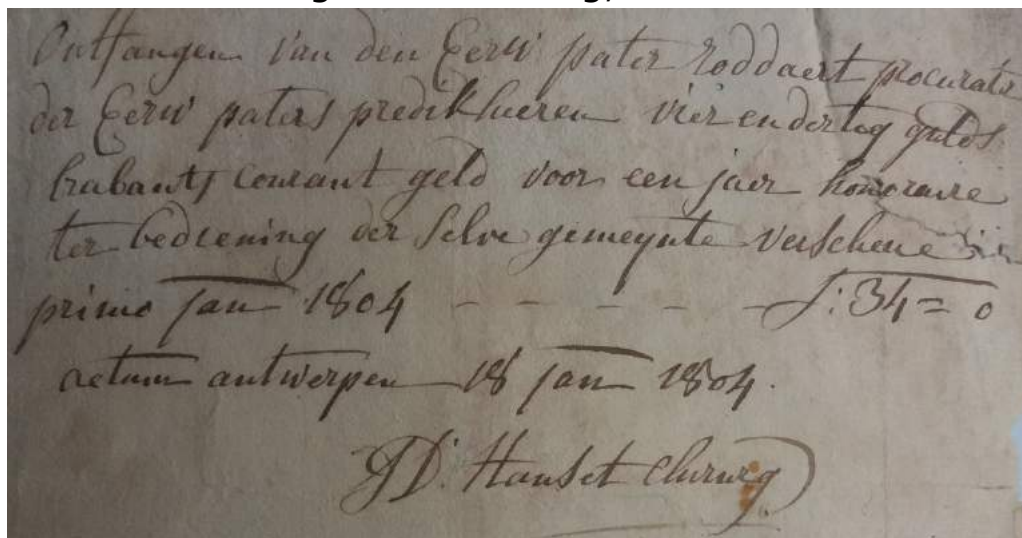 Ontfangen van den Eerw pater Roddaert procurator
der Eerw paters predikheeren vier en dertig gulds
brabants courant geld voor een jaer honoraire
ter bediening der selve gemeynte verschene in
primo jan 1804 - - - - - f: 34 = 0
actum antwerpen 18 jan 1804.
JD. Hanset Chirurg